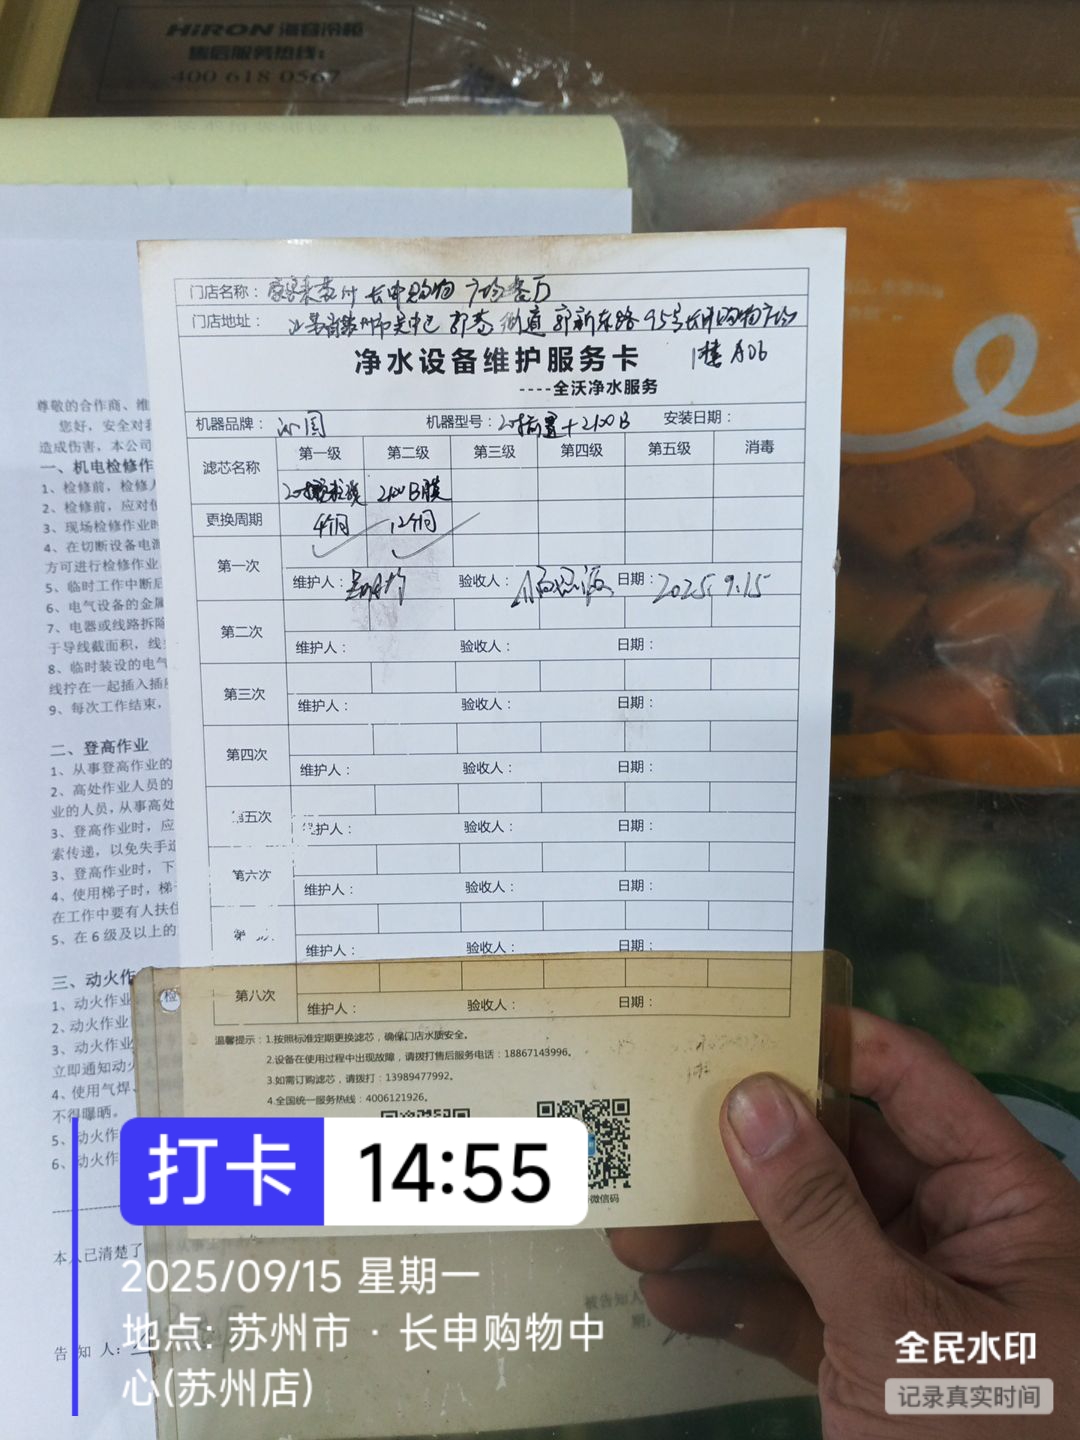 HiRON 海容冷链
售后服务热线：
400 618 0567
尊敬的合作商、维
您好，安全对我
造成伤害，本公司
一、机电检修作
1、检修前，检修人
2、检修前，应对使
3、现场检修作业时
4、在切断设备电源
方可进行检修作业
5、临时工作中断后
6、电气设备的金属
7、电器或线路拆除
于导线截面积，线头
8、临时装设的电气
线拧在一起插入插座
9、每次工作结束，
二、登高作业
1、从事登高作业的
2、高处作业人员的
业的人员，从事高处
3、登高作业时，应
索传递，以免失手造
3、登高作业时，下
4、使用梯子时，梯子
在工作中要有人扶住
5、在6级及以上的
三、动火作
1、动火作业
2、动火作业
3、动火作业
立即通知动火
4、使用气焊、
不得曝晒。
5、动火作
6、动火作
本人已清楚了
告 知 人：
门店名称： 长申购物广场
门店地址： 江苏省苏州市吴中区郭巷街道郭新东路95号长申购物广场
1楼A06
净水设备维护服务卡
----全沃净水服务
机器品牌：沁园 机器型号：20寸前置+2100B 安装日期：
滤芯名称 第一级 第二级 第三级 第四级 第五级 消毒
2100B膜
更换周期 4个月 12个月
第一次
维护人： 验收人： 日期：2025.9.15
第二次
维护人： 验收人： 日期：
第三次
维护人： 验收人： 日期：
第四次
维护人： 验收人： 日期：
第五次
维护人： 验收人： 日期：
第六次
维护人： 验收人： 日期：
第
维护人： 验收人： 日期：
第八次
维护人： 验收人： 日期：
温馨提示：1.按照标准定期更换滤芯，确保门店水质安全。
2.设备在使用过程中出现故障，请拨打售后服务电话：18867143996。
3.如需订购滤芯，请拨打：13989477992。
4.全国统一服务热线：4006121926。
微信码
被告知人
打卡 14:55
2025/09/15 星期一
地点: 苏州市 · 长申购物中
心(苏州店)
全民水印
记录真实时间